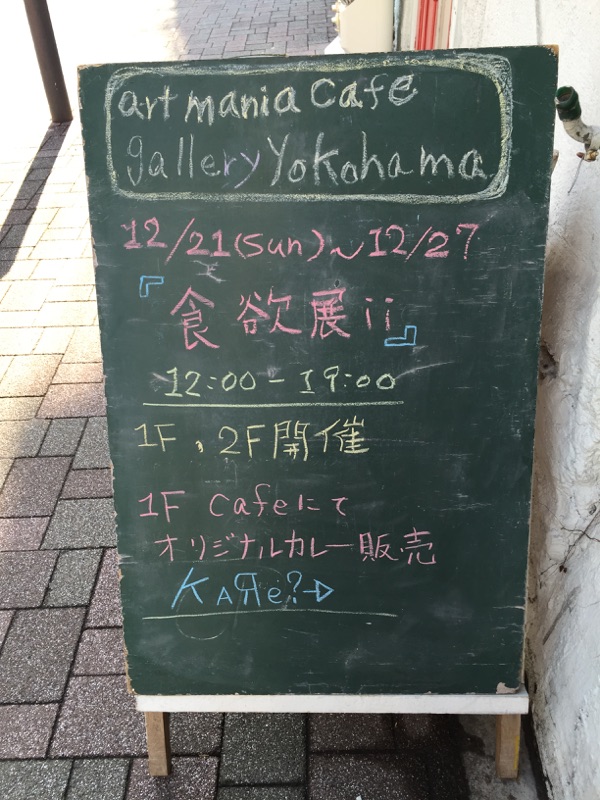 art mania cafe
gallery Yokohama
12/21(sun)~12/27
『食欲展ii』
12:00-19:00
1F、2F開催
1F cafeにて
オリジナルカレー販売
KAЯe?